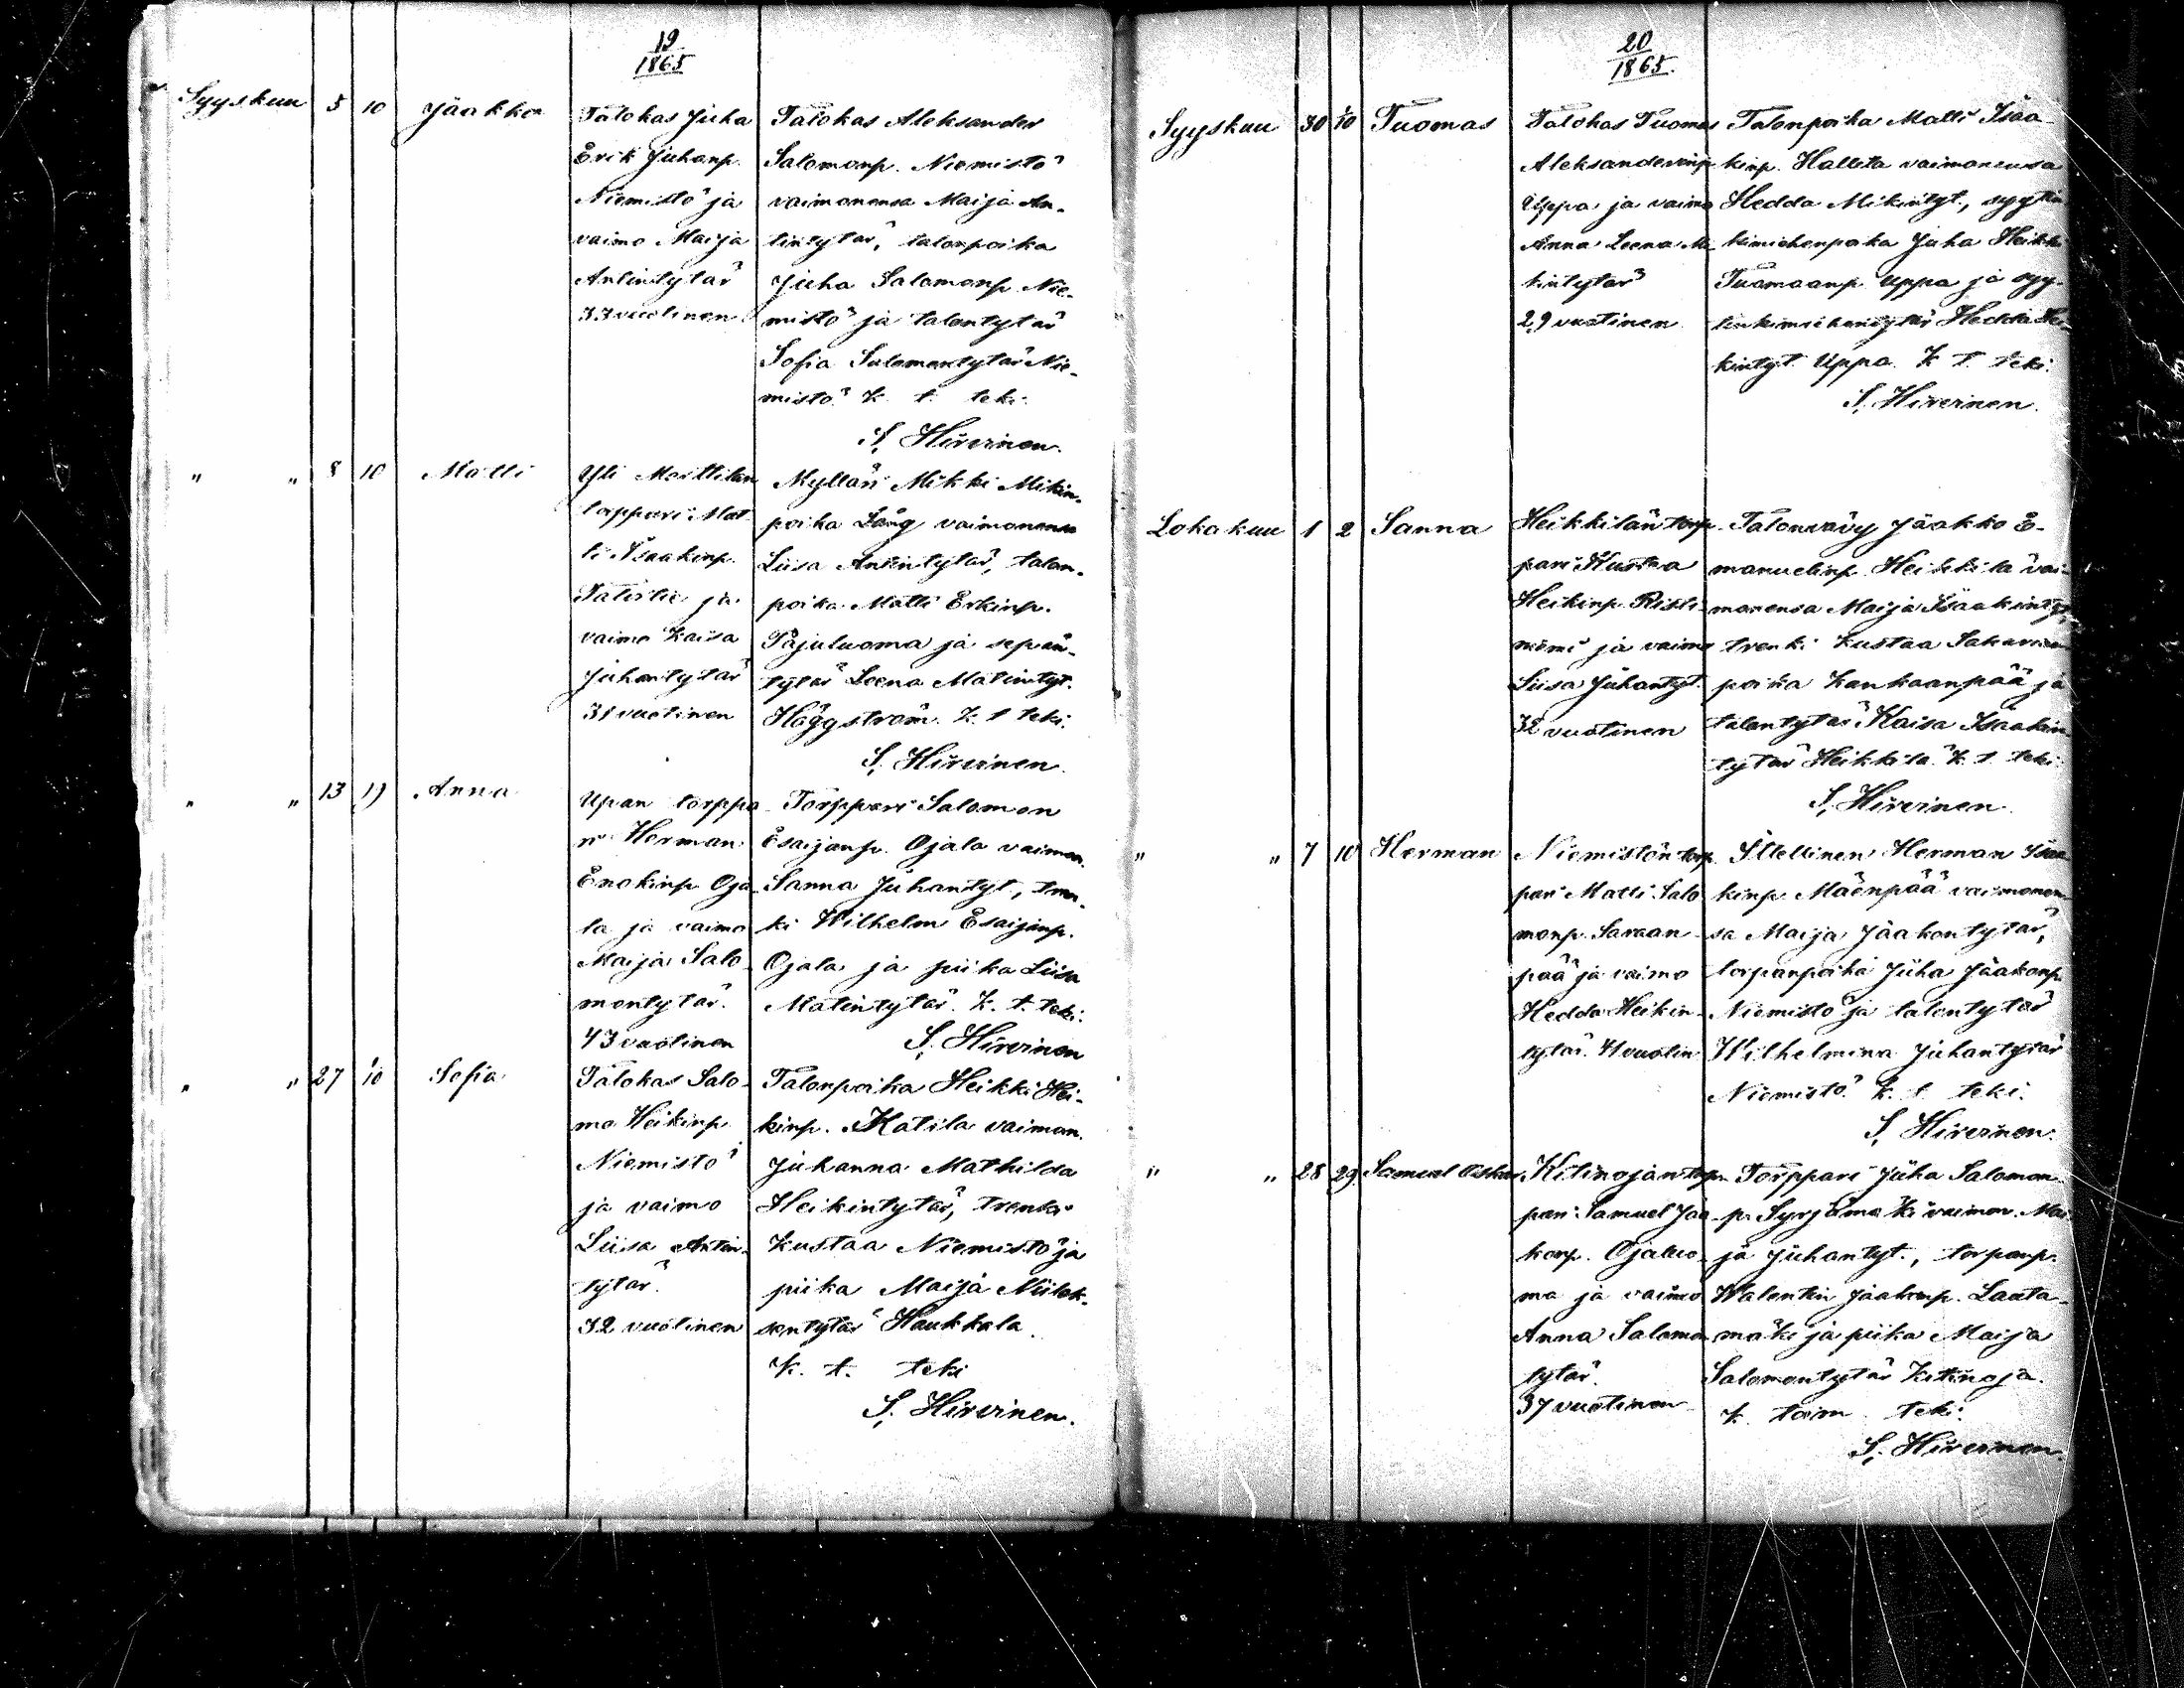 19
1865
Syyskuu 5 10 Jaakko
Talokas Juha
Erik Juhanp.
Niemistö ja
vaimo Maija
Antintytär
33 vuotinen
Talokas Aleksander
Salomonp. Niemistö
vaimonensa Maija An-
tintytär, talonpoika
Juha Salomonp. Nie-
mistö ja talontytär
Sofia Salomontytär Nie-
mistö. K. t. teki.
S. Hirvinen.
" " 8 10 Matti
Yli Marttilan
torppari Mat-
ti Isaakinp.
ja
vaimo Kaisa
Juhantytär
31 vuotinen
Mylläri Mikki Mikin-
poika Lång vaimonensa
Liisa Antintytär, talon-
poika Matti Erkinp.
Pajuluoma ja sepän-
tytär Leena Matintyt.
Häggström. K. t. teki.
S. Hirvinen.
" " 13 17 Anna
Upan torppa-
ri Herman
Enokinp. Oja-
la ja vaimo
Maija Salo-
montytär.
43 vuotinen
Torppari Salomon
Esaijanp. Ojala vaimon.
Sanna Juhantyt., tren-
ki Wilhelm Esaijanp.
Ojala ja piika Liisa
Matintytär. K. t. teki.
S. Hirvinen
" " 27 10 Sofia
Talokas Salo-
mo Heikinp.
Niemistö
ja vaimo
Liisa Antin-
tytär.
32 vuotinen
Talonpoika Heikki Hei-
kinp. Katila vaimon.
Juhanna Mathilda
Heikintytär, trenki
Kustaa Niemistö ja
piika Maija Niilok-
sentytär Haukkala.
K. t. teki
S. Hirvinen.
20
1865.
Syyskuu 30 10 Tuomas
Talokas Tuomas
Aleksanderinp.
Uppa ja vaimo
Anna Leena Mi-
kintytär
29 vuotinen
Talonpoika Matti Isaa-
kinp. Hallila vaimonensa
Hedda Mikintyt., syytin-
kimiehenpoika Juha Heikki
Tuomaanp. Uppa ja syy-
tinkimiehentytär Hedda
kintyt. Uppa. K. t. teki.
S. Hirvinen.
Lokakuu 1 2 Sanna
Heikkilän torp-
pari Kustaa
Heikinp. Risti-
nimi ja vaimo
Liisa Juhantyt.
32 vuotinen
Talonvävy Jaakko E-
manuelinp. Heikkilä vai-
monensa Maija Isaakintyt.,
trenki Kustaa Sakarin
poika Kankaanpää ja
talontytär Kaisa Isaakin
tytär Heikkilä. K. t. teki.
S. Hirvinen.
" " 7 10 Herman
Niemistön torp-
pari Matti Salo-
monp. Saraan-
pää ja vaimo
Hedda Heikin-
tytär. 41 vuotin
Itellinen Herman Isaa-
kinp. Mäenpää vaimonen-
sa Maija Jaakontytär,
torpanpoika Juha Jaakonp.
Niemistö ja talontytär
Wilhelmina Juhantytär
Niemistö. K. t. teki.
S. Hirvinen.
" " 28 29 Samuel Oskar
Kitinojan torp-
pari Samuel Jaa-
konp. Ojaluo-
ma ja vaimo
Anna Salomon
tytär.
37 vuotinen
Torppari Juha Salomon-
p. Syrjämäki vaimon. Mai-
ja Juhantyt., torpanp.
Walentin Jaakonp. Lauta-
mäki ja piika Maija
Salomontytär Kitinoja.
K. toim. teki.
S. Hirvinen.